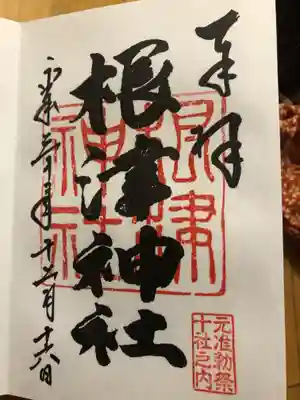 奉拝
根津神社
根津
神社
元准勅祭
十社之内
平成三十年十二月十六日